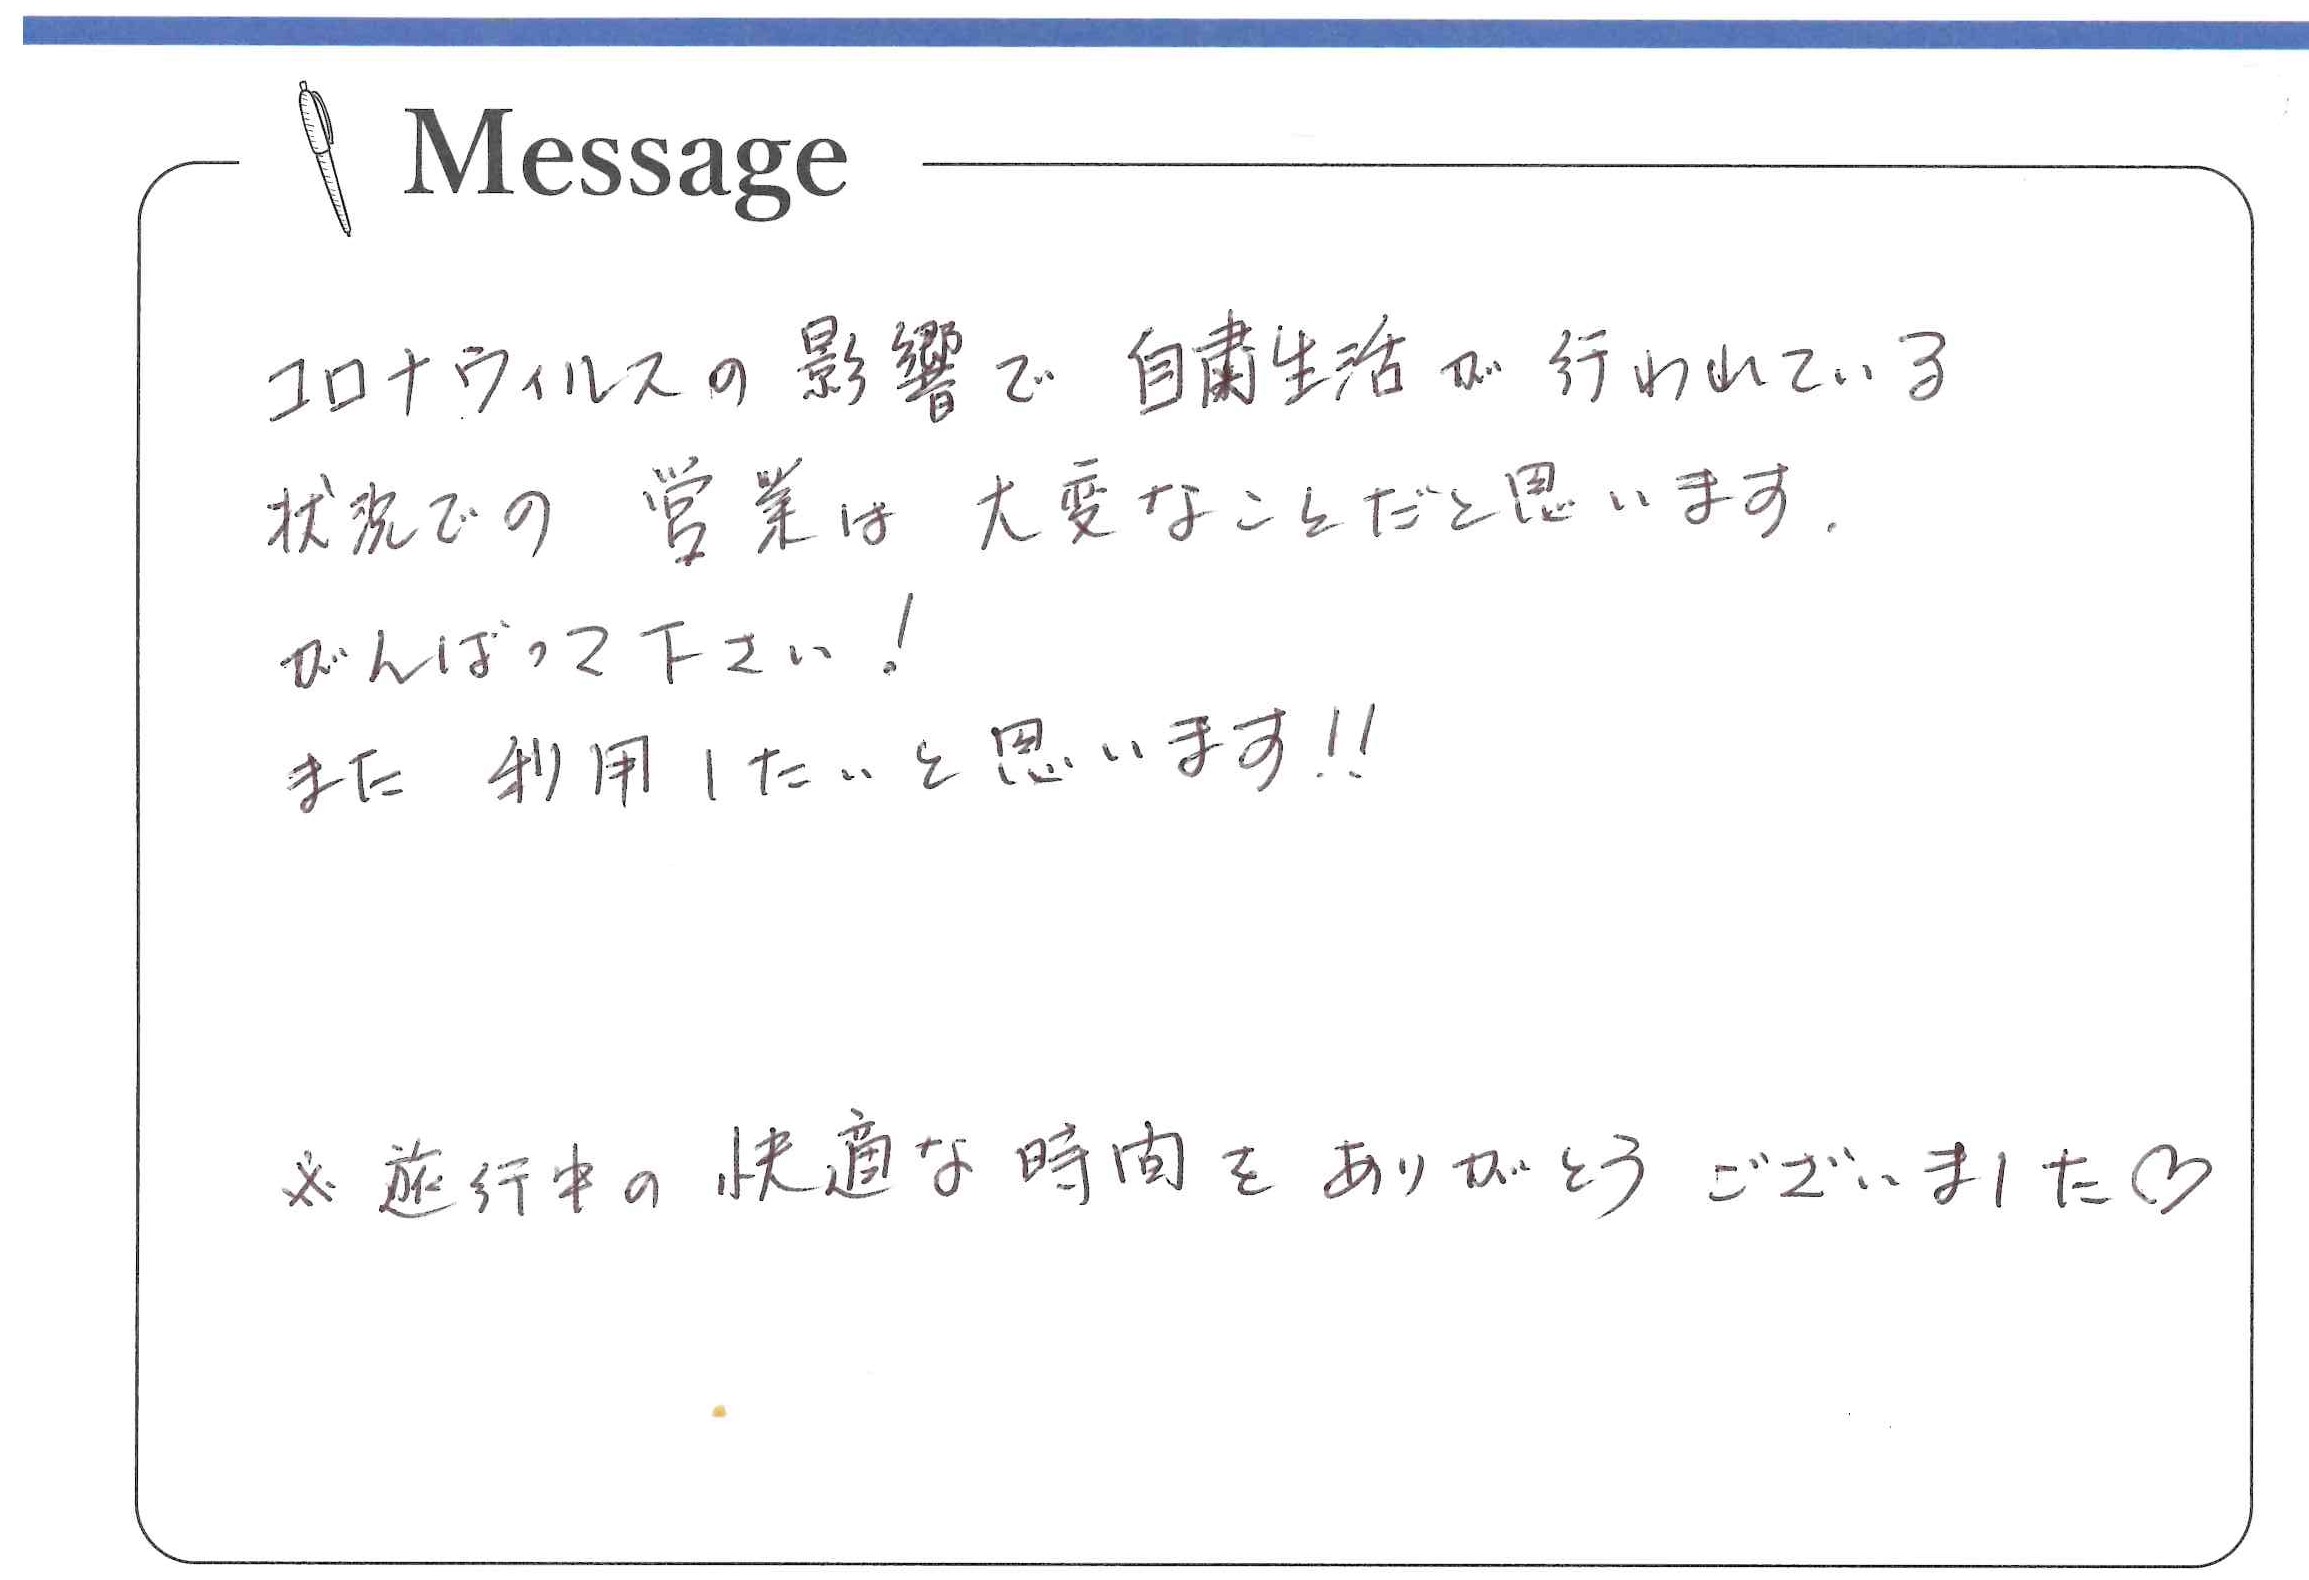 Message
コロナウィルスの影響で自粛生活が行われている
状況での 営業は 大変なことだと思います.
がんばって下さい!
また 利用したいと思います!!
※ 旅行中の快適な時間をありがとうございました♡